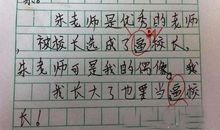 朱老师是优秀的老师
,被校长选成了逼校长,
朱老师可是我的偶像,我
我长大了也要当逼校
长!